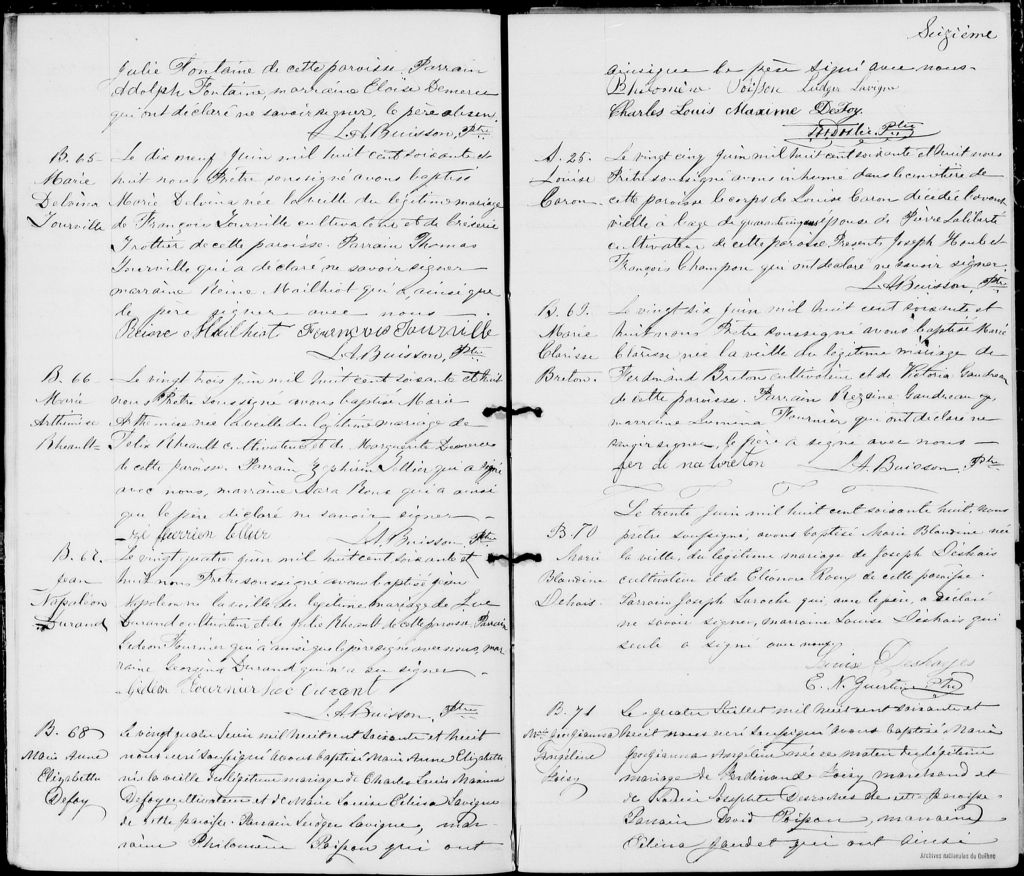 Julie Fontaine de cette paroisse. Parrain
Adolph Fontaine, marraine Eloise Demerse
qui ont déclaré ne savoir signer, le père absen.
L. A. Buisson, Ptre
B. 65
Marie
Delvina
Tourville
Le dix neuf Juin mil huit cent soixante et
huit nous Prêtre soussigné avons baptisé
Marie Delvina née la veille du légitime mariage
de François Tourville cultivateur et de
Trottier de cette paroisse. Parrain Thomas
Tourville qui a déclaré ne savoir signer
marraine Reine Mailhiot qui a, ainsi que
le père signer avec nous
Reine Mailhiot François Tourville
L. A. Buisson, Ptre
B. 66
Marie
Arthemise
Rheault
Le vingt trois juin mil huit cent soixante et huit
nous Prêtre soussigné avons baptisé Marie
née la veille du légitime mariage de
Felix Rheault cultivateur et de Marguerite Demerse
de cette paroisse. Parrain Zephirin qui a signé
avec nous, marraine Sara Roux qui a ainsi
que le père déclaré ne savoir signer
L. A. Buisson, Ptre
B. 67
Jean
Napoléon
Durand
Le vingt quatre juin mil huit cent soixante et
huit nous Prêtre soussigné avons baptisé Jean
Napoleon né la veille du légitime mariage de Luc
Durand cultivateur et de Julie Rheault de cette paroisse Parrain
Gédeon Fournier qui a ainsi que le père signé avec nous, mar
raine Durand qui n'a su signer
Gidéon Fournier Luc Durant
L. A. Buisson, Ptre
B. 68
Marie Anne
Elizabeth
Defoy
Le vingt quatre Juin mil huit cent soixante et huit
nous curé soussigné avons baptisé Marie Anne Elizabeth
née la veille du légitime mariage de Charles Louis Maxime
Defoy cultivateur et de Marie Louise Célina Lavigne
de cette paroisse. Parrain Ludger Lavigne, mar-
raine Philomène Poisson qui ont
Seizième
ainsi que le père signé avec nous.
Philomène Poisson Ludger Lavigne
Charles Louis Maxime DeFoy.
S. 25.
Louise
Caron
Le vingt cinq Juin mil huit cent soixante et huit nous
Prêtre soussigné avons inhumé dans le cimetière de
cette paroisse le corps de Louise Caron décédée l'avant
vieille à l'age de épouse de Pierre Laliberté
cultivateur de cette paroisse. Presents Joseph Houle et
François Champou qui ont déclaré ne savoir signer.
L. A. Buisson Ptre
B. 69.
Marie
Clarisse
Breton.
Le vingt six juin mil huit cent soixante et
huit nous Prêtre soussigné avons baptisé Marie
Clarisse née la veille du légitime mariage de
Ferdinand Breton cultivateur et de Victoria Gaudreau
de cette paroisse. Parrain Gaudreau
marraine Fournier qui ont déclaré ne
savoir signer, le père a signé avec nous
fer di na breton
L. A. Buisson, Ptre
B. 70
Marie
Blandine
Dehais
Le trente Juin mil huit cent soixante huit, nous
prêtre soussigné, avons baptisé Marie Blandine née
la veille, du légitime mariage de Joseph Deshais
cultivateur et de Eléonore Roux de cette paroisse.
Parrain Joseph Laroche qui, avec le père, a déclaré
ne savoir signer, marraine Louise Deshais qui
seule a signé avec nous
Louise Deshayes
E. N. Guertin Ptre
B. 71
Mie Georgianna
Angélene
Foisy
Le quatre Juillet mil huit cent soixante et
huit nous curé soussigné avons baptisé Marie
Georgianna Angéline née ce matin du légitime
mariage de Ferdinand Foisy marchand et
de Josephte Desroches de cette paroisse.
Parrain David Poisson, marraine
Célina Gaudet qui ont ainsi
Archives nationales du Québec